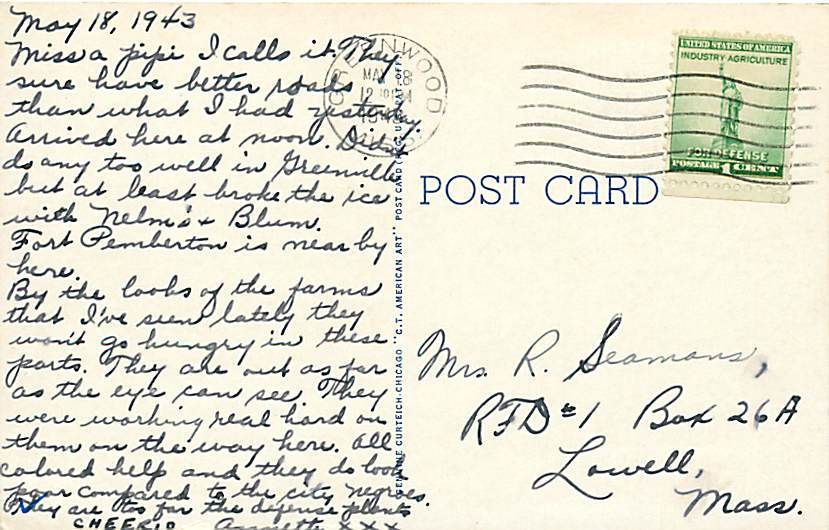 May 18, 1943
Miss a pipi I calls it. They
sure have better roads
than what I had yesterday.
Arrived here at noon. Didn't
do any too well in Greenville
but at least broke the ice
with Nelm's & Blum.
Fort Pemberton is near by
here.
By the looks of the farms
that I've seen lately they
won't go hungry in these
parts. They are out as far
as the eye can see. They
were working real hard on
them on the way here. All
colored help and they do look
poor compared to the city negroes.
They are too far the defense plants
CHEERIO XXX
GREENWOOD
MAY 18
GENUINE CURTEICH-CHICAGO "C.T. AMERICAN ART" POST CARD (REG. U.S. PAT. OFF.)
UNITED STATES OF AMERICA
INDUSTRY AGRICULTURE
FOR DEFENSE
POSTAGE 1 CENT
POST CARD
Mrs. R. Seamans,
RFD #1 Box 26A
Lowell,
Mass.